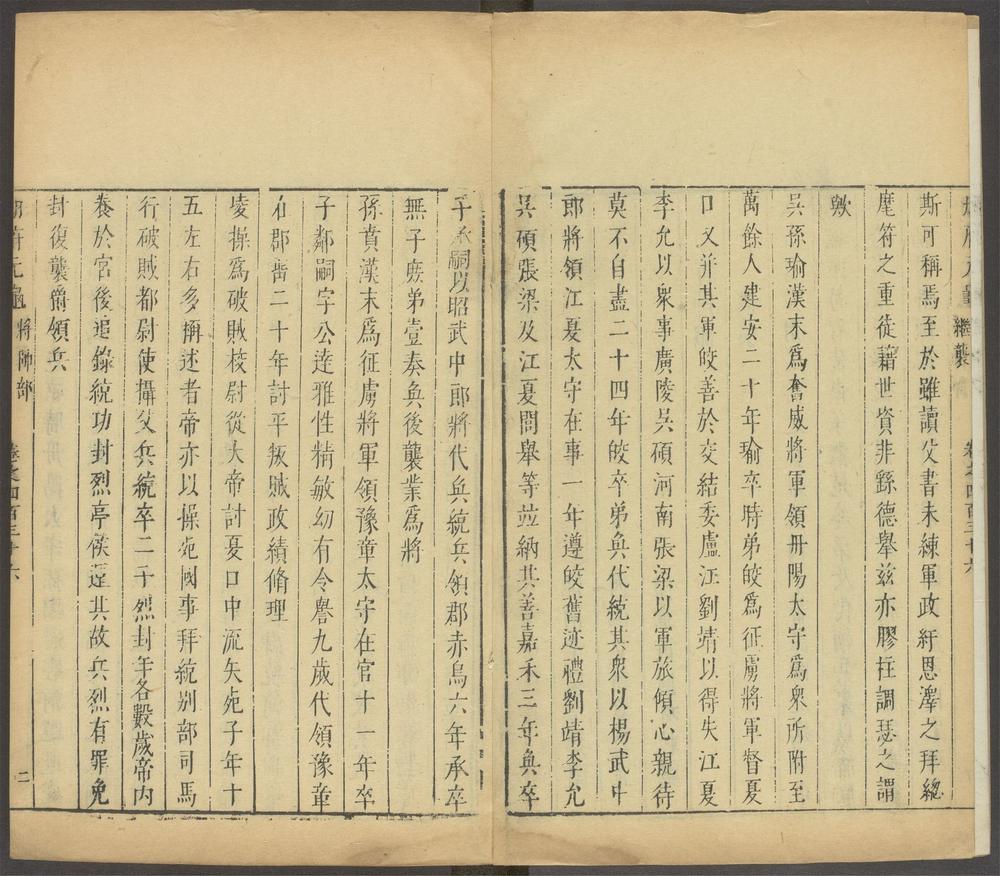 冊府元龜 繼襲 卷之四百三十六
斯可稱焉至於雖讀父書未練軍政紆恩澤之拜總
麾符之重徒藉世資非繇德舉兹亦膠柱調瑟之謂
歟
吳孫瑜漢末爲奮威將軍領丹陽太守爲衆所附至
萬餘人建安二十年瑜卒時弟皎爲征虜將軍督夏
口又并其軍皎善於交結委盧江劉靖以得失江夏
李允以衆事廣陵吳碩河南張梁以軍旅傾心親待
莫不自盡二十四年皎卒弟奐代統其衆以楊武中
郎將領江夏太守在事一年遵皎舊迹禮劉靖李允
吳碩張梁及江夏閭舉等並納其善嘉禾三年奐卒
子承嗣以昭武中郎將代兵統兵領郡赤烏六年承卒
無子庶弟壹奏奐後襲業爲將
孫賁漢末爲征虜將軍領豫章太守在官十一年卒
子鄰嗣字公達雅性精敏幼有令譽九歲代領豫章
在郡嵒二十年討平叛賊政績脩理
凌操爲破賊校尉從大帝討夏口中流矢死子年十
五左右多稱述者帝亦以操死國事拜統别部司馬
行破賊都尉使攝父兵統卒二子烈封年各數歲帝内
養於宮後追錄統功封烈亭侯還其故兵烈有罪免
封復襲爵領兵
冊府元龜 將帥部 卷之四百三十六 二